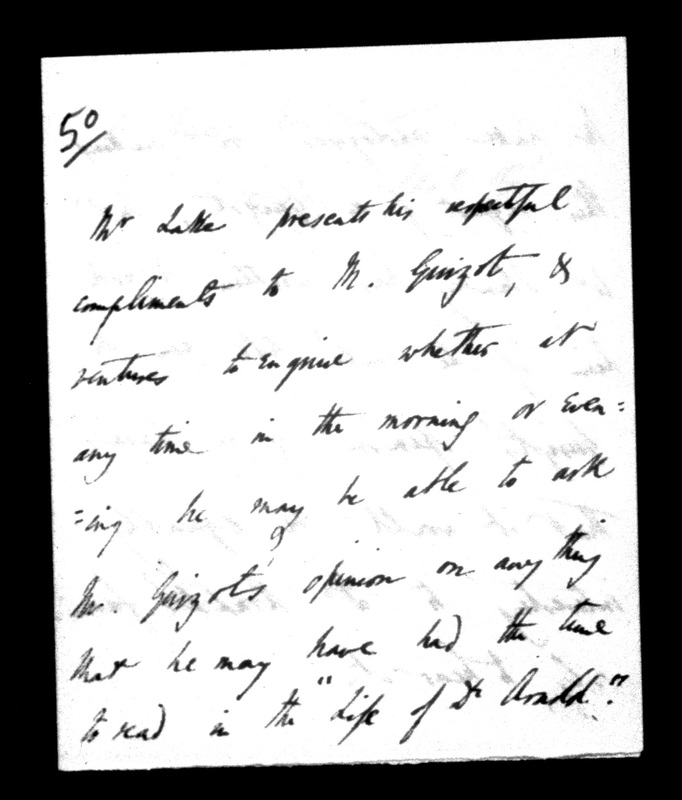 50/
Mr Lake presents his respectful
compliments to M. Guizot, &
ventures to enquire whether at
any time in the morning or even=
=ing he may be able to ask
M. Guizot's opinion on any thing
that he may have had the time
to read in the "Life of Dr Arnold."